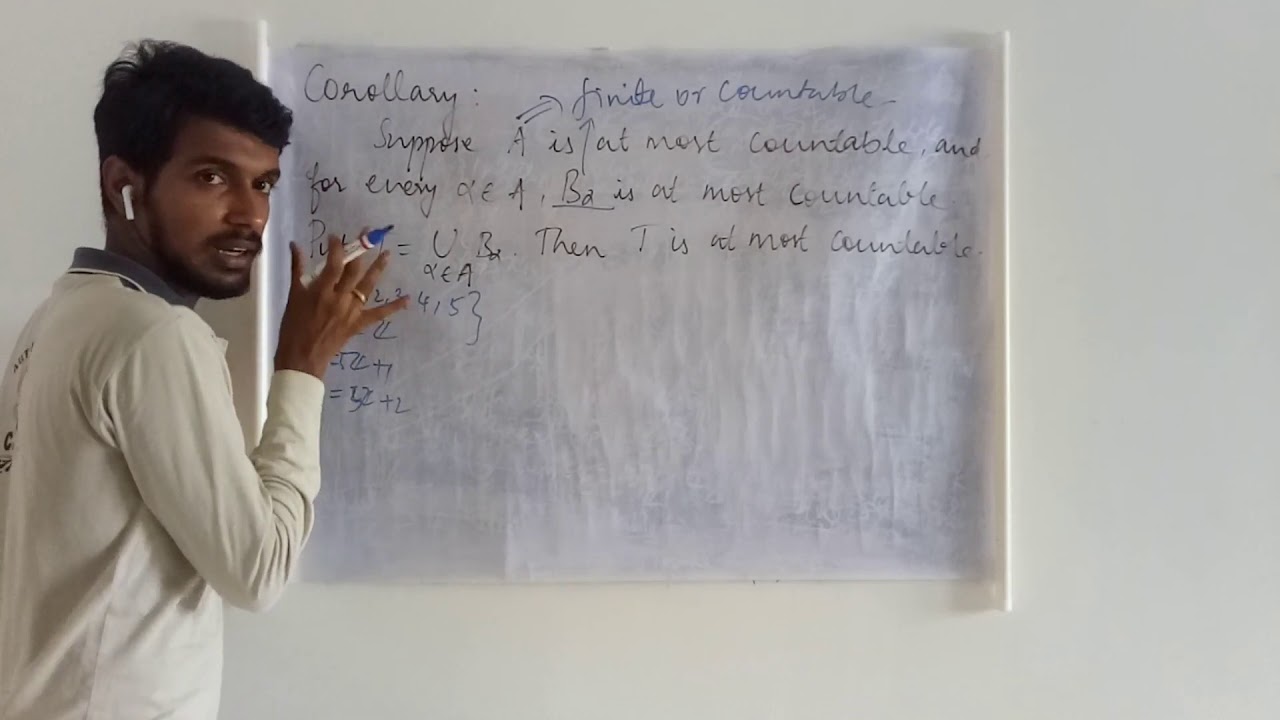 Corollary: finite or countable
Suppose A is at most countable, and
for every α ∈ A, Bα is at most countable.
Put T = ∪ Bα. Then T is at most countable.
α ∈ A
2, 3 4, 5}
+1
+2